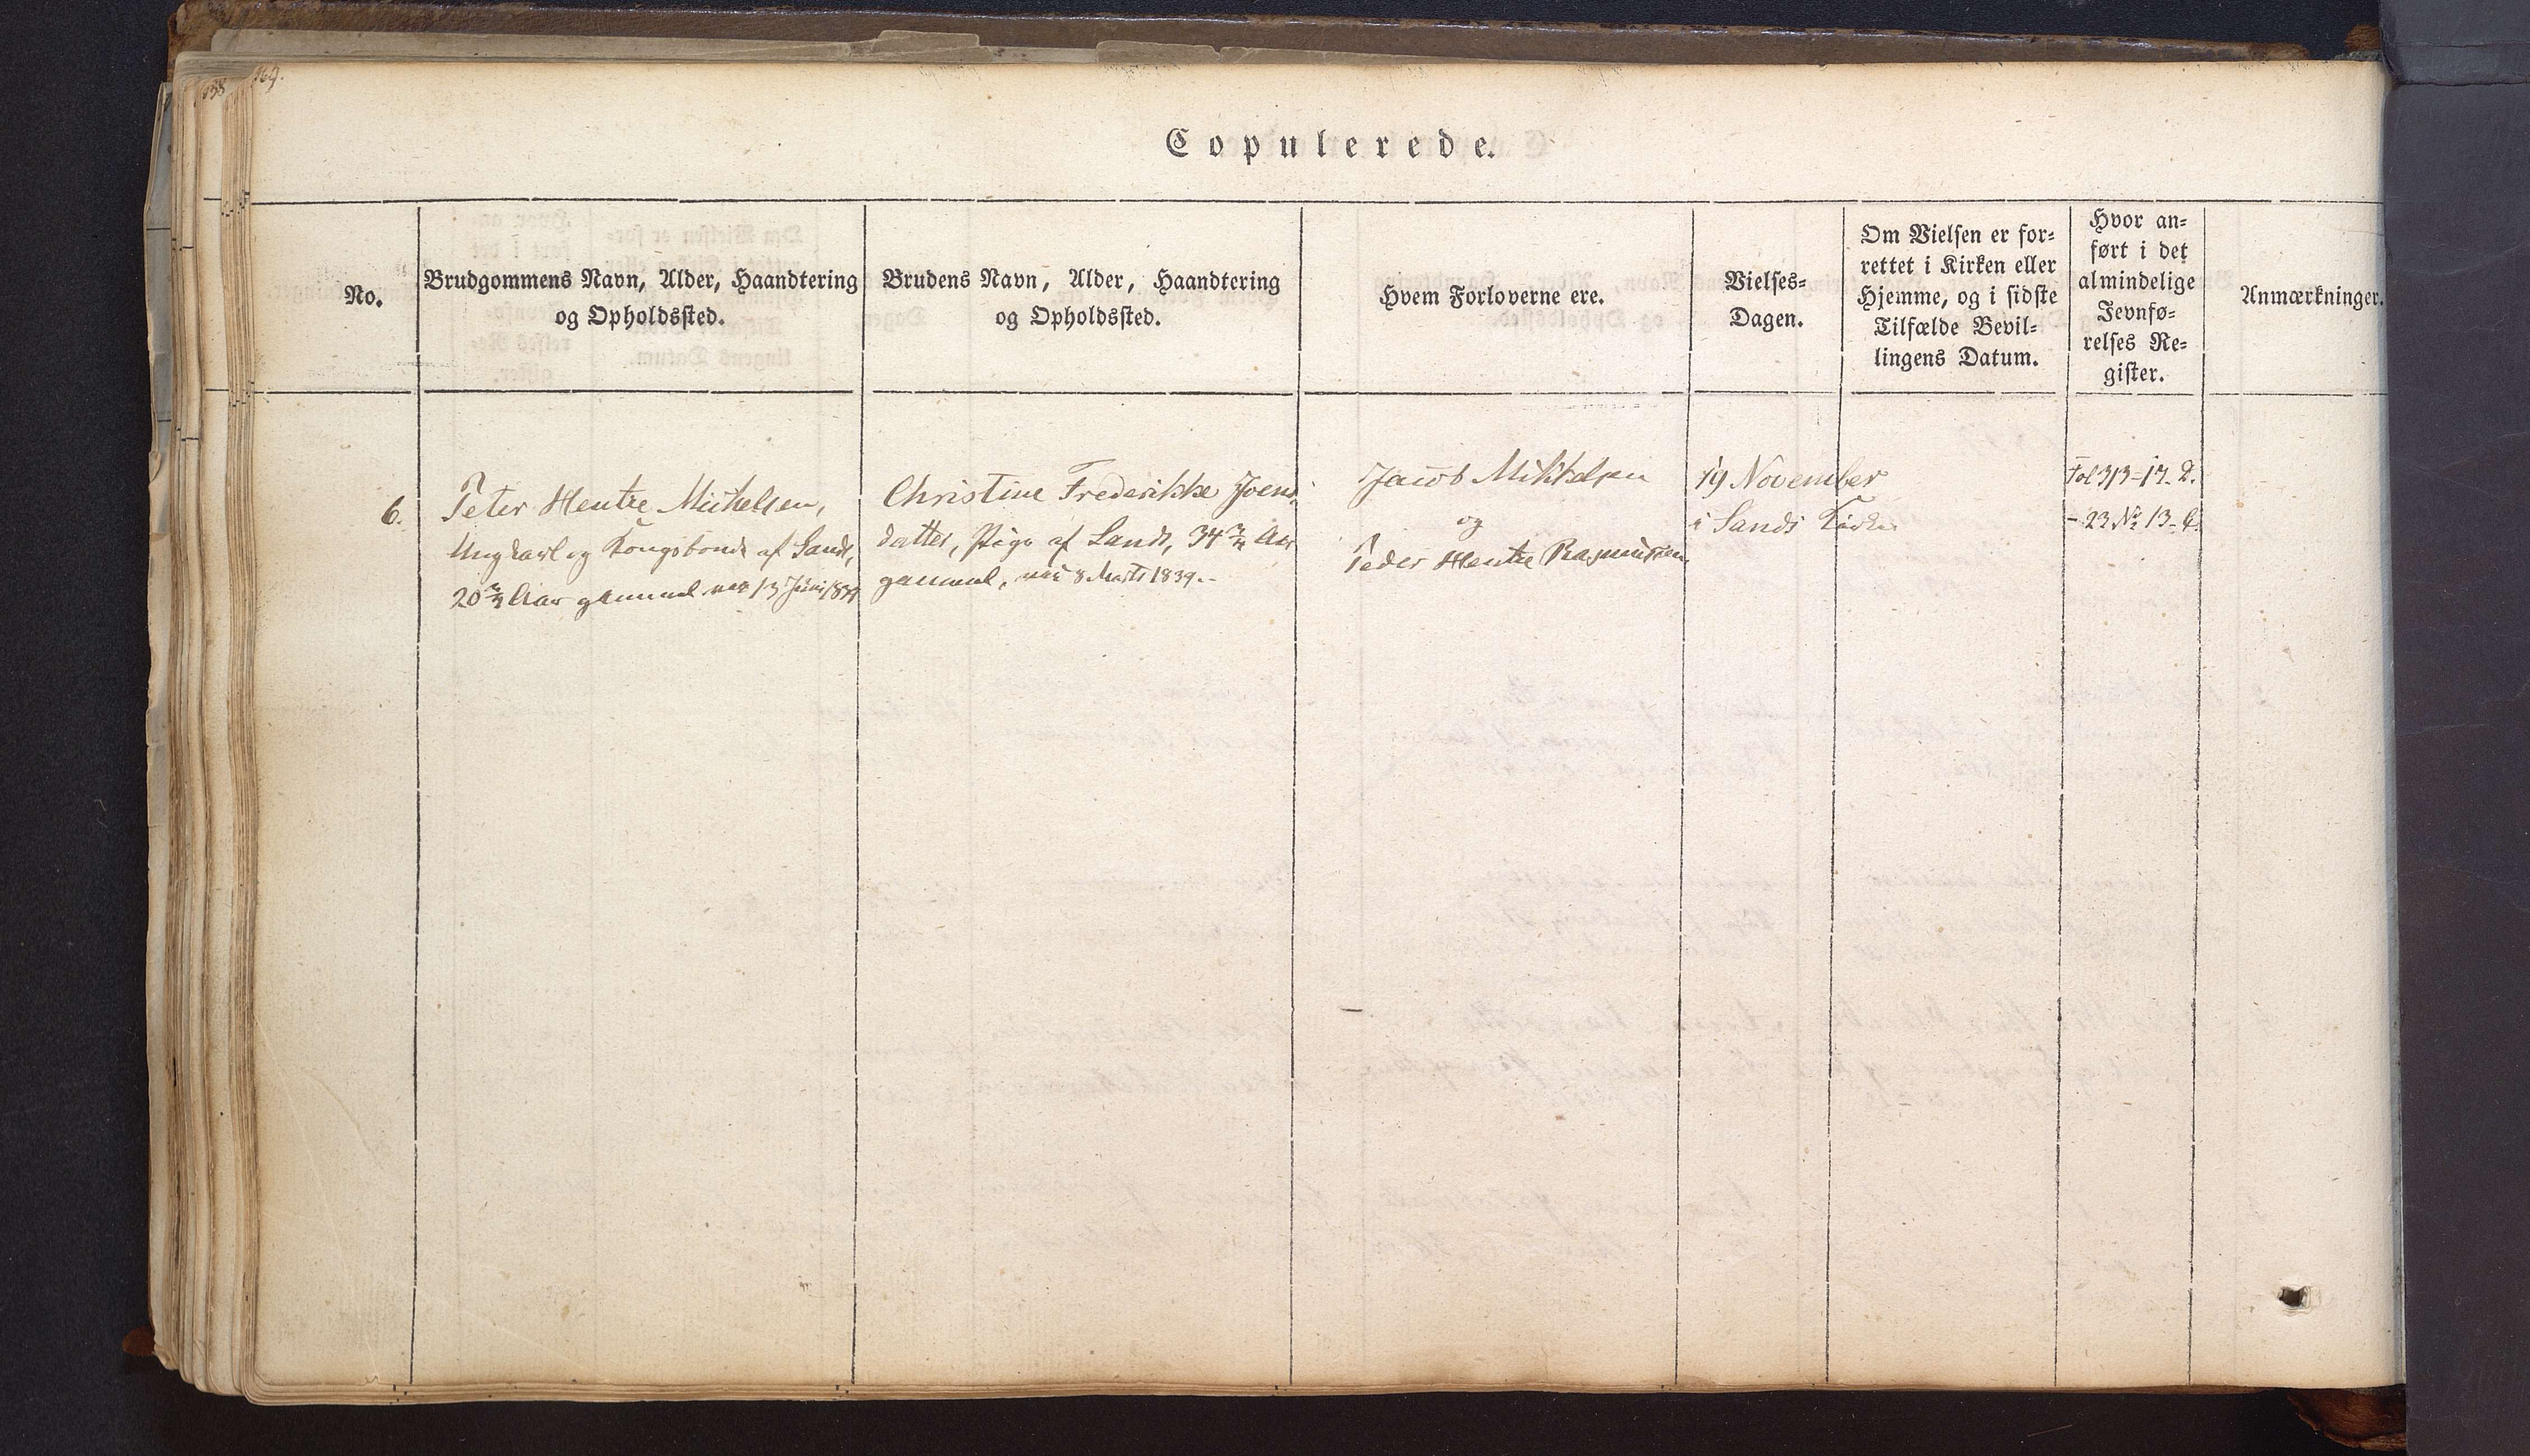 169.
Copulerede.
No.
Brudgommens Navn, Alder, Haandtering
og Opholdssted.
Brudens Navn, Alder, Haandtering
og Opholdssted.
Hvem Forloverne ere.
Vielses-
Dagen.
Om Vielsen er for-
rettet i Kirken eller
Hjemme, og i sidste
Tilfælde Bevil-
lingens Datum.
Hvor an-
ført i det
almindelige
Jevnfø-
relses Re-
gister.
Anmærkninger.
6.
Peter Hentze Michelsen,
Ungkarl og Kongsbonde af Sand,
20 3/4 Aar gammel vac 13 Juni 1839
Christine Frederikke Joens-
datter, Pige af Sand, 34 3/4 Aar
gammel, vac 8 Marts 1839.
Jacob Mikkelsen
og
Peder Hentze Rasmussen
19 November
i Sands Kirke
Fol 313-17-2.
- 23 No 13-6.